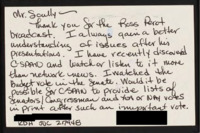 Mr. Scully—
Thank you for the Ross Perot
broadcast. I always gain a better
understanding of issues after his
presentations. I have recently discovered
C-SPAN and watch or listen to it more
than network news. I watched the
budget vote in the Senate. Would it be
possible for C-SPAN to provide lists of
Senators/Congressman and Yes or No votes
in print after such an important vote.
27948